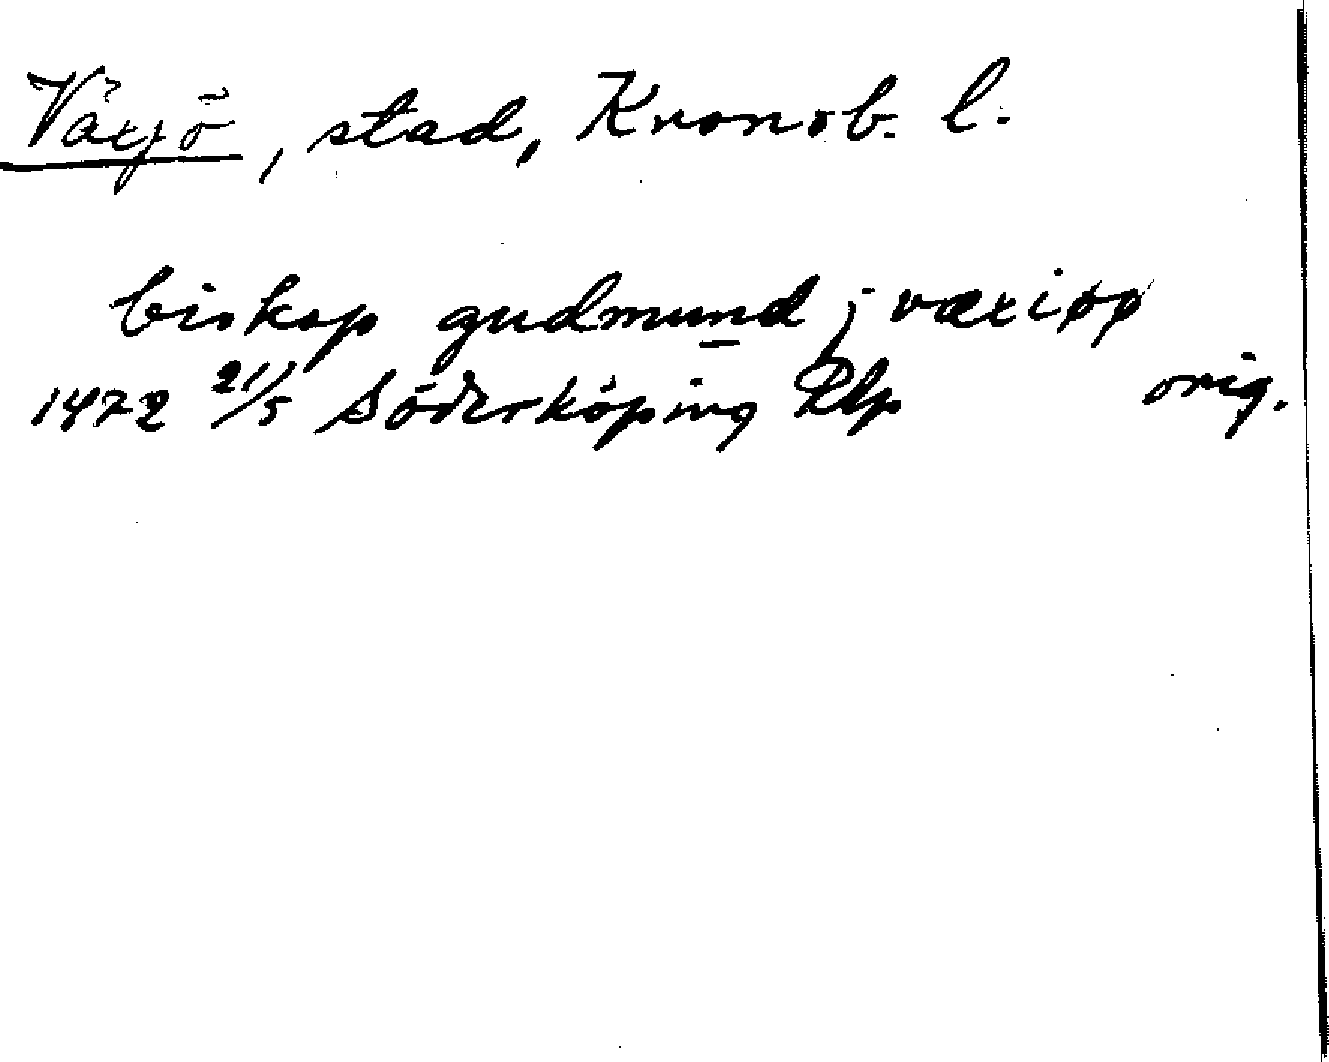 Växjö, stad, Kronob. l.
biskop gudmund j væxiøø
1472 21/5 Söderköping RAp orig.